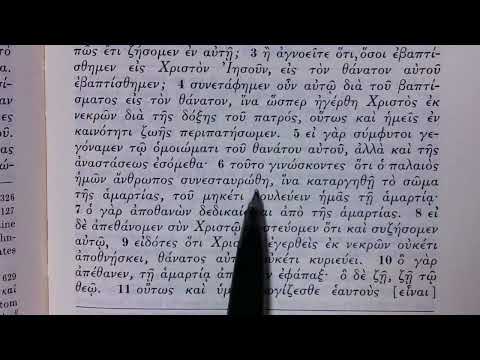 πῶς ἔτι ζήσομεν ἐν αὐτῇ; 3 ἢ ἀγνοεῖτε ὅτι, ὅσοι ἐβαπτί-
σθημεν εἰς Χριστὸν Ἰησοῦν, εἰς τὸν θάνατον αὐτοῦ
ἐβαπτίσθημεν; 4 συνετάφημεν οὖν αὐτῷ διὰ τοῦ βαπτί-
σματος εἰς τὸν θάνατον, ἵνα ὥσπερ ἠγέρθη Χριστὸς ἐκ
νεκρῶν διὰ τῆς δόξης τοῦ πατρός, οὕτως καὶ ἡμεῖς ἐν
καινότητι ζωῆς περιπατήσωμεν. 5 εἰ γὰρ σύμφυτοι γε-
γόναμεν τῷ ὁμοιώματι τοῦ θανάτου αὐτοῦ, ἀλλὰ καὶ τῆς
ἀναστάσεως ἐσόμεθα· 6 τοῦτο γινώσκοντες ὅτι ὁ παλαιὸς
ἡμῶν ἄνθρωπος συνεσταυρώθη, ἵνα καταργηθῇ τὸ σῶμα
τῆς ἁμαρτίας, τοῦ μηκέτι ἡμᾶς τῇ ἁμαρτίᾳ·
7 ὁ γὰρ ἀποθανὼν ἀπὸ τῆς ἁμαρτίας. 8 εἰ
δὲ ἀπεθάνομεν σὺν ὅτι καὶ συζήσομεν
αὐτῷ, 9 εἰδότες ὅτι ἐκ νεκρῶν οὐκέτι
ἀποθνῄσκει, θάνατος οὐκέτι κυριεύει. 10 ὃ γὰρ
ἀπέθανεν, τῇ ἁμαρτίᾳ ἐφάπαξ· ὃ δὲ ζῇ, ζῇ τῷ
θεῷ. 11 οὕτως καὶ ἑαυτοὺς [εἶναι]
326
127
629